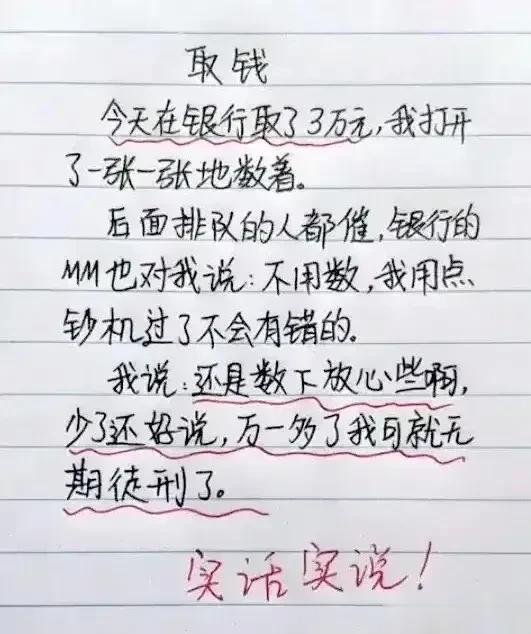 取钱
今天在银行取了3万元,我打开
了一张一张地数着。
后面排队的人都催,银行的
MM也对我说:不用数,我用点
钞机过了不会有错的。
我说:还是数下放心些啊,
少了还好说,万一多了我可就无
期徒刑了。
实话实说!